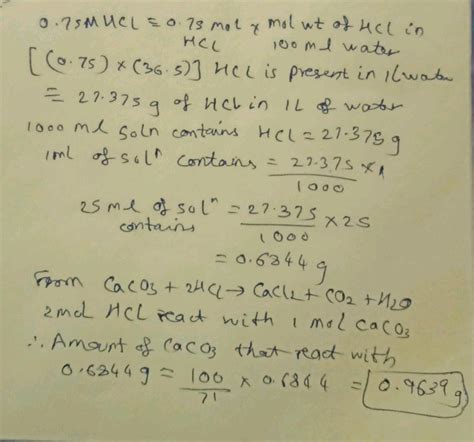 0.75M HCl ≡ 0.75 mol × mol wt of HCl in
HCl 100 ml water
[(0.75) × (36.5)] HCl is present in 1L water
= 27.375 g of HCl in 1L of water
1000 ml soln contains HCl = 27.375 g
1ml of solⁿ contains = 27.375 × 1
1000
25 ml of solⁿ = 27.375 × 25
contains 1000
= 0.6844 g
From CaCO3 + 2HCl → CaCl2 + CO2 + H2O
2 mol HCl react with 1 mol CaCO3
∴ Amount of CaCO3 that react with
0.6844 g = 100 × 0.6844 = 0.9639 g
71